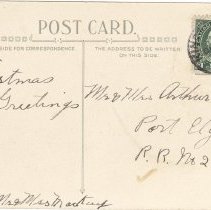 POST CARD.
SIDE FOR CORRESPONDENCE
THE ADDRESS TO BE WRITTEN
ON THIS SIDE.
stmas
Greetings
Mr & Mrs Arthur
Port El
R. R. No 2
Mr & Mrs